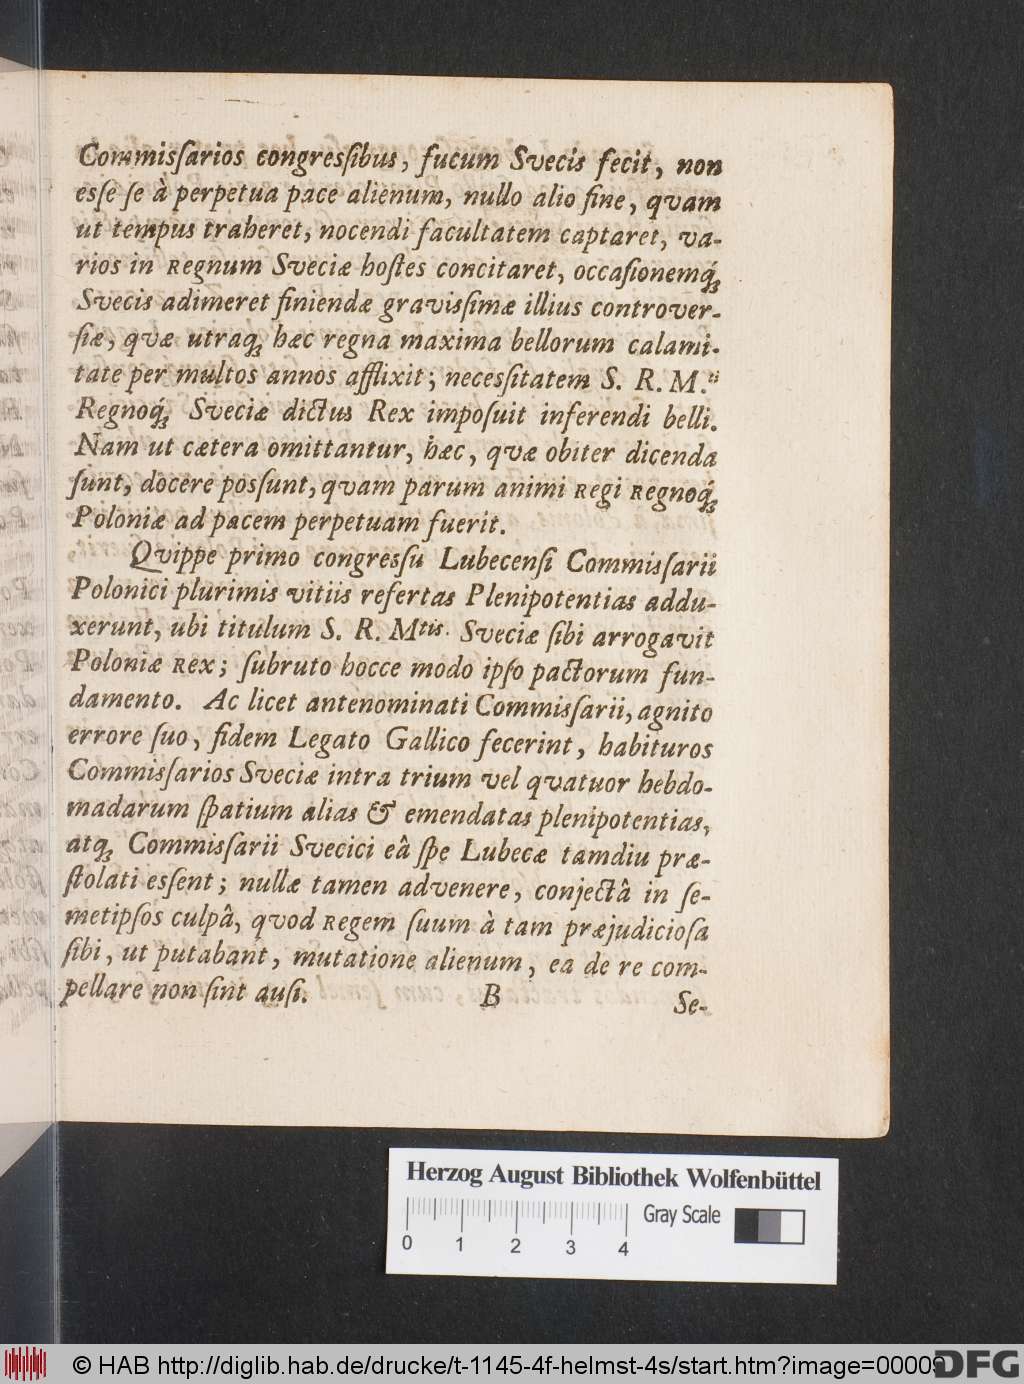 Commisſarios congresſibus, fucum Svecis fecit, non
esſe ſe à perpetua pace alienum, nullo alio fine, qvam
ut tempus traheret, nocendi facultatem captaret, va-
rios in Regnum Sveciæ hoſtes concitaret, occaſionemq́;
Svecis adimeret finiendæ gravisſimæ illius controver-
ſiæ, qvæ utraq; hæc regna maxima bellorum calami-
tate per multos annos afflixit; necesſitatem S. R. M.ti
Regnoq́; Sveciæ dictus Rex impoſuit inferendi belli.
Nam ut cætera omittantur, hæc, qvæ obiter dicenda
ſunt, docere posſunt, qvam parum animi Regi Regnoq́;
Poloniæ ad pacem perpetuam fuerit.
Qvippe primo congresſu Lubecenſi Commisſarii
Polonici plurimis vitiis refertas Plenipotentias addu-
xerunt, ubi titulum S. R. Mtis. Sveciæ ſibi arrogavit
Poloniæ Rex; ſubruto hocce modo ipſo pactorum fun-
damento. Ac licet antenominati Commisſarii, agnito
errore ſuo, fidem Legato Gallico fecerint, habituros
Commisſarios Sveciæ intra trium vel qvatuor hebdo-
madarum ſpatium alias & emendatas plenipotentias,
atq; Commisſarii Svecici eâ ſpe Lubecæ tamdiu præ-
ſtolati esſent; nullæ tamen advenere, conjectâ in ſe-
metipſos culpâ, qvod Regem ſuum à tam præjudicioſa
ſibi, ut putabant, mutatione alienum, ea de re com-
pellare non ſint auſi. B Se-
Herzog August Bibliothek Wolfenbüttel
Gray Scale
0 1 2 3 4
© HAB http://diglib.hab.de/drucke/t-1145-4f-helmst-4s/start.htm?image=00009
DFG